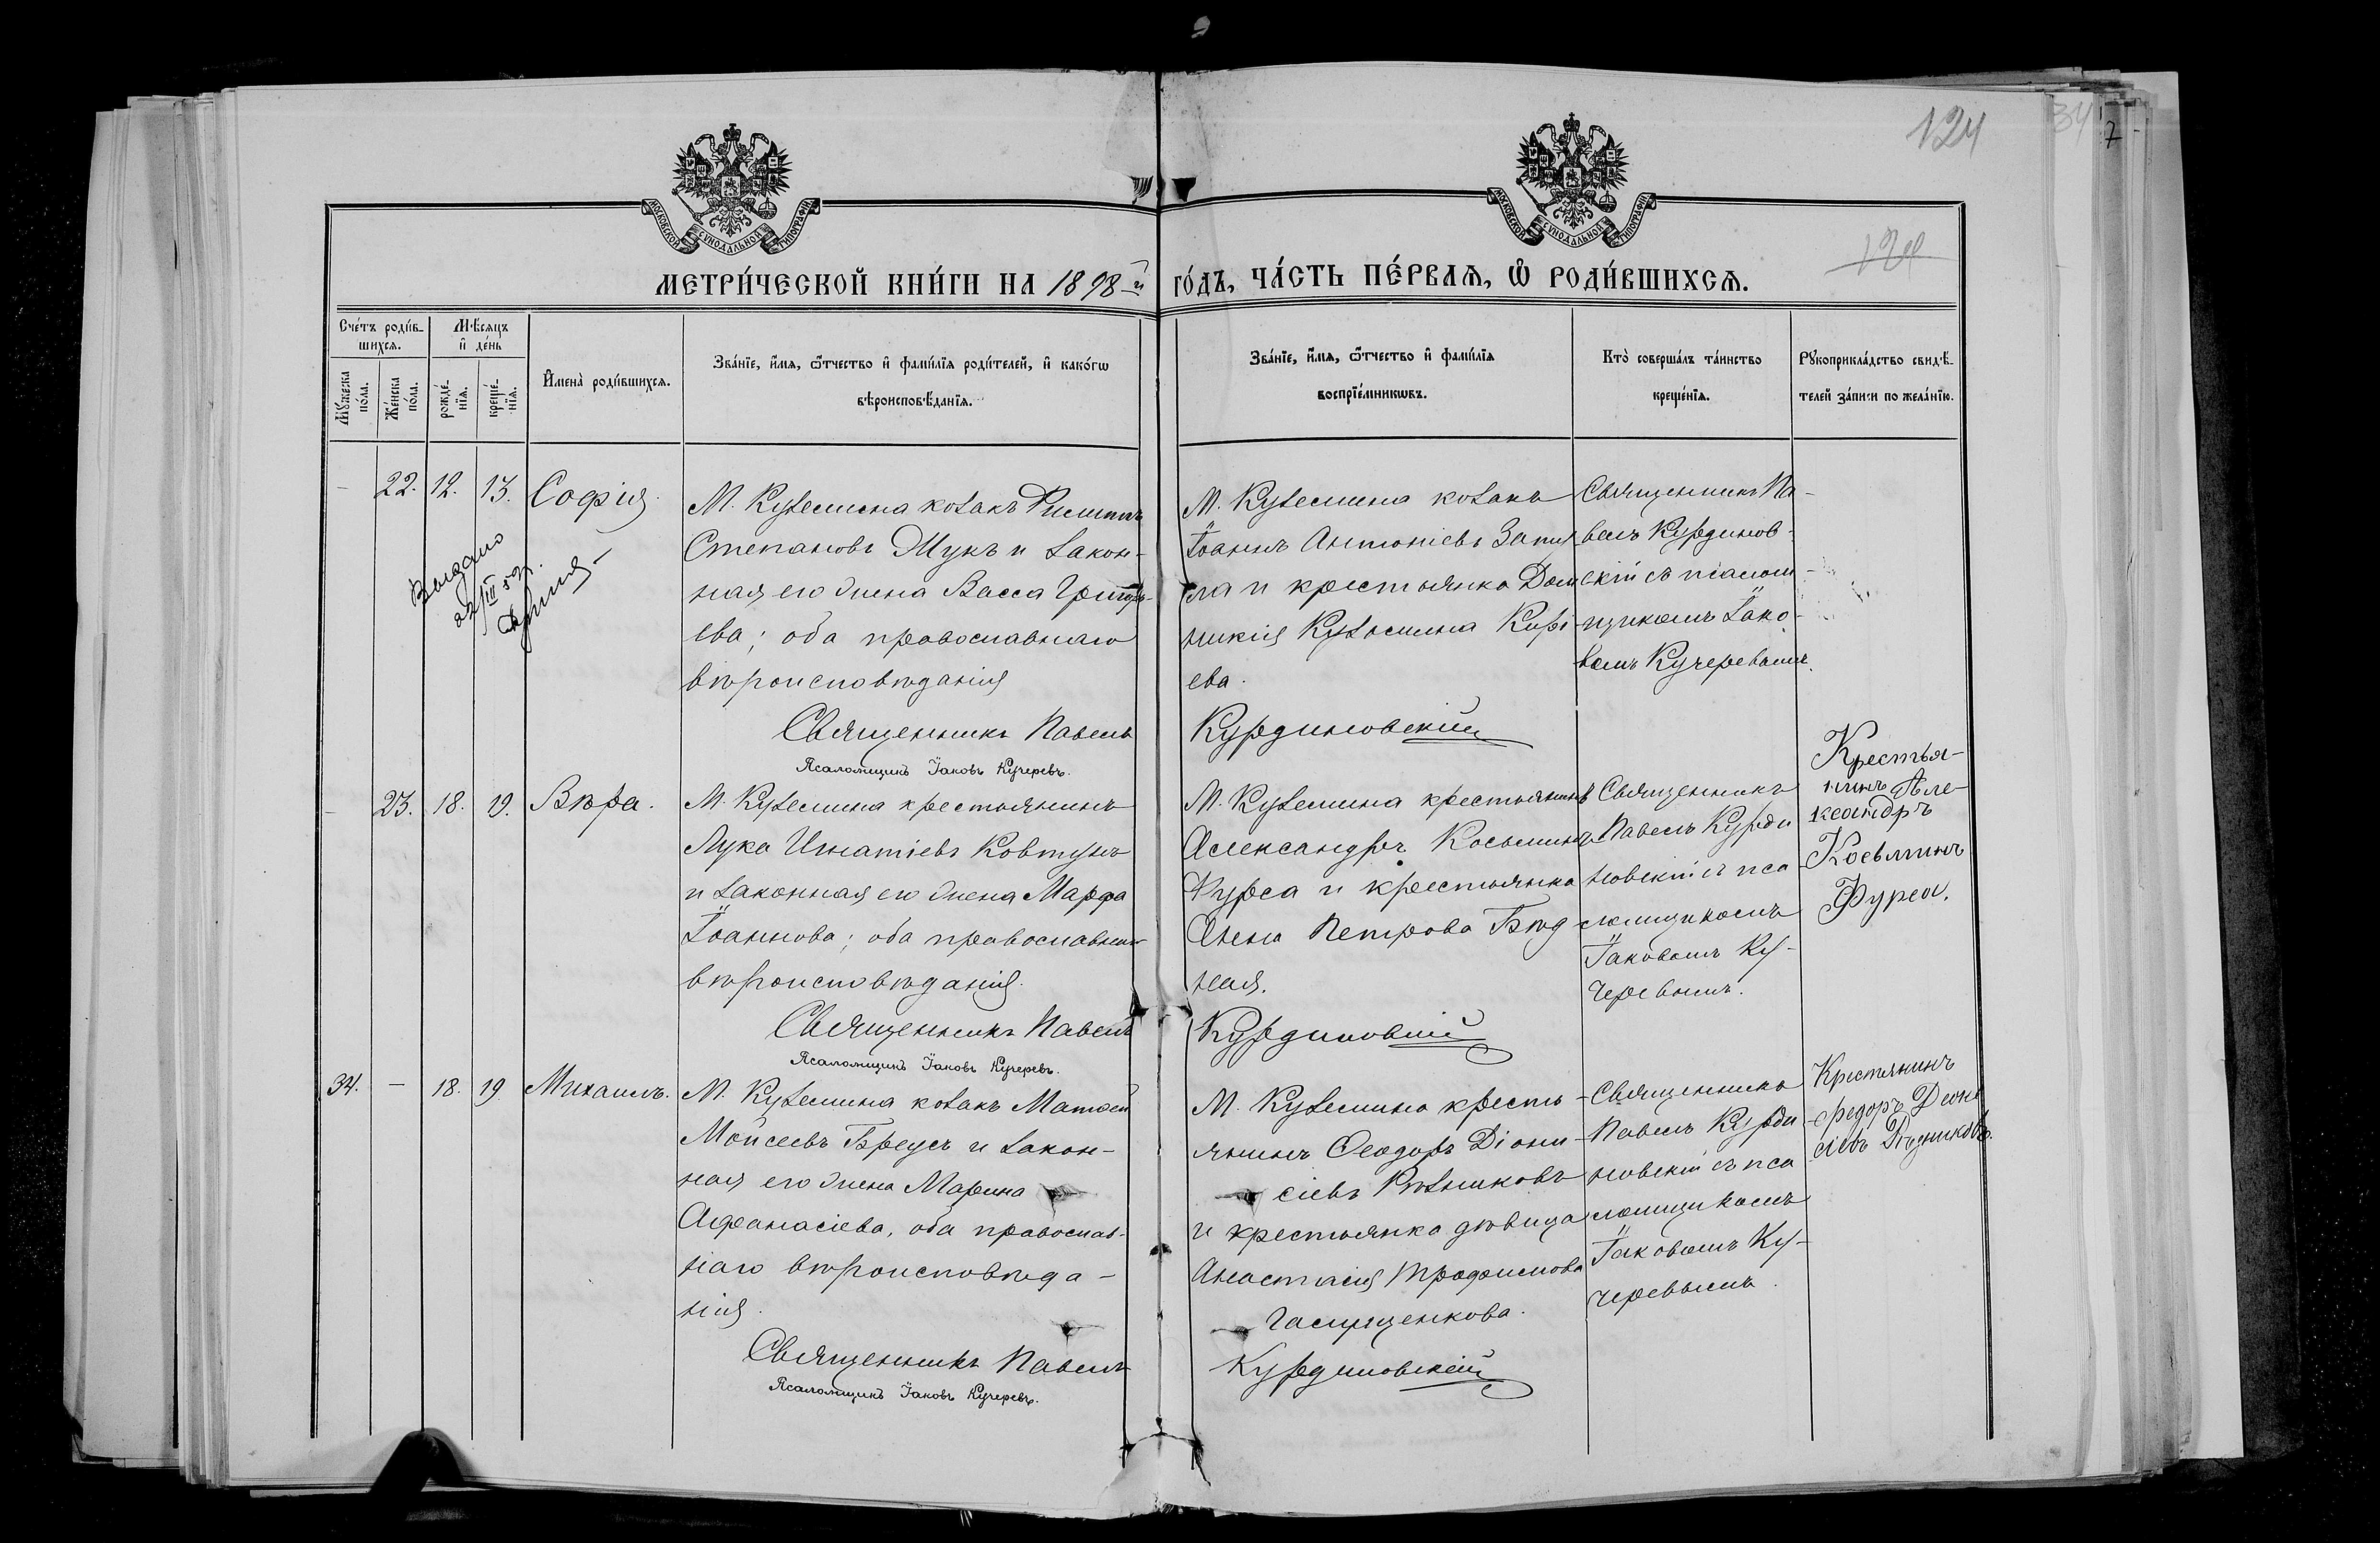 124
МОСКОВСКОЙ СѴНОДАЛЬНОЙ ТИПОГРАФІИ
МОСКОВСКОЙ СѴНОДАЛЬНОЙ ТИПОГРАФІИ
МЕТРИ́ЧЕСКОЙ КНИ́ГИ НА 1898-й го́дъ, ЧА́СТЬ ПЕ́РВАѦ, Ѿ РОДИ́ВШИХСѦ.
Сче́тъ роди́в-
шихсѧ.
Мꙋ́жеска
по́ла.
Же́нска
по́ла.
Мѣ́сѧцъ
и҆ де́нь
рожде́-
нїѧ.
креще́-
нїѧ.
И҆мена̀ роди́вшихсѧ.
Зва́нїе, и҆́мѧ, ѻ҆́тчество и҆ фами́лїѧ роди́телей, и҆ како́гѡ
вѣроисповѣ́данїѧ.
Зва́нїе, и҆́мѧ, ѻ҆́тчество и҆ фами́лїѧ
воспрїе́мникѡвъ.
Кто̀ соверша́лъ та́инство
креще́нїѧ.
Рꙋкоприкла́дство свидѣ́-
телей за́писи по жела́нїю.
– 22. 12. 13. Софія.
М. Куземина козакъ Филиппъ
Степановъ Жукъ и закон-
ная его жена Васса Григорь-
ева; оба православнаго
вѣроисповѣданія
Священникъ Павелъ
Псаломщикъ Іаковъ Кучеревъ.
М. Куземина козакъ
Іоаннъ Антоніевъ
и крестьянка Дом
никія Кузьмина
ева.
Курдиновскій
Священникъ Па-
велъ Курдинов-
скій съ псалом-
щикомъ Іако-
вомъ Кучеревымъ.
Выдано
– 23. 18. 19. Вѣра.
М. Куземина крестьянинъ
Лука Игнатіевъ Ковтунъ
и законная его жена Марфа
Іоаннова; оба православнаго
вѣроисповѣданія.
Священникъ Павелъ
Псаломщикъ Іаковъ Кучеревъ.
М. Куземина крестьянинъ
Александръ Косьминъ
Фурса и крестьянка
Петрова Бѣд
ная.
Курдиновскій
Священникъ
Павелъ Курди
новскій съ пса
ломщикомъ
Іаковомъ Ку-
черевымъ.
Крестья-
нинъ Але-
ксандръ
Косьминъ
Фурса.
34. – 18. 19. Михаилъ.
М. Куземина козакъ Матѳей
Мойсеевъ Бреусъ и закон-
ная его жена Марина
Афанасіева, оба православ-
наго вѣроисповѣда-
нія.
Священникъ Павелъ
Псаломщикъ Іаковъ Кучеревъ.
М. Куземина кресть-
янинъ Ѳеодоръ Діони-
сіевъ Рѣзниковъ
и крестьянка дѣвица
Анастасія Трофимова
Курдиновскій
Священникъ
Павелъ Курди
новскій съ пса
ломщикомъ
Іаковомъ Ку-
черевымъ.
Крестянинъ
Федоръ Деони
сіевъ